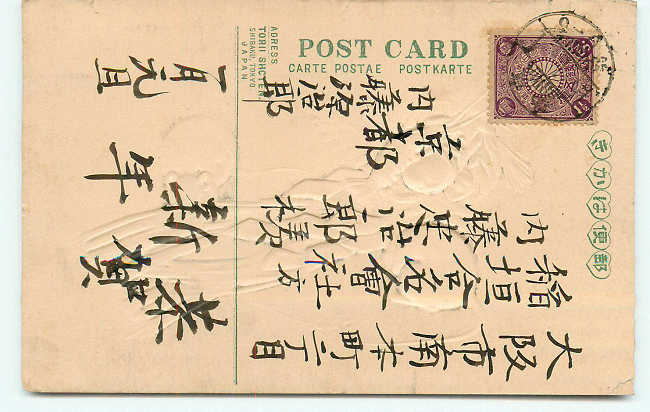 POST CARD
CARTE POSTAE POSTKARTE
きかは便郵
大阪市南本町二丁目
稲垣合名會社方
内藤東治郎様
京都
内藤源治郎
恭賀
新年
一月元旦
ADRESS
TORII SHOTEN
SHIBAKU, TOKYO,
JAPAN